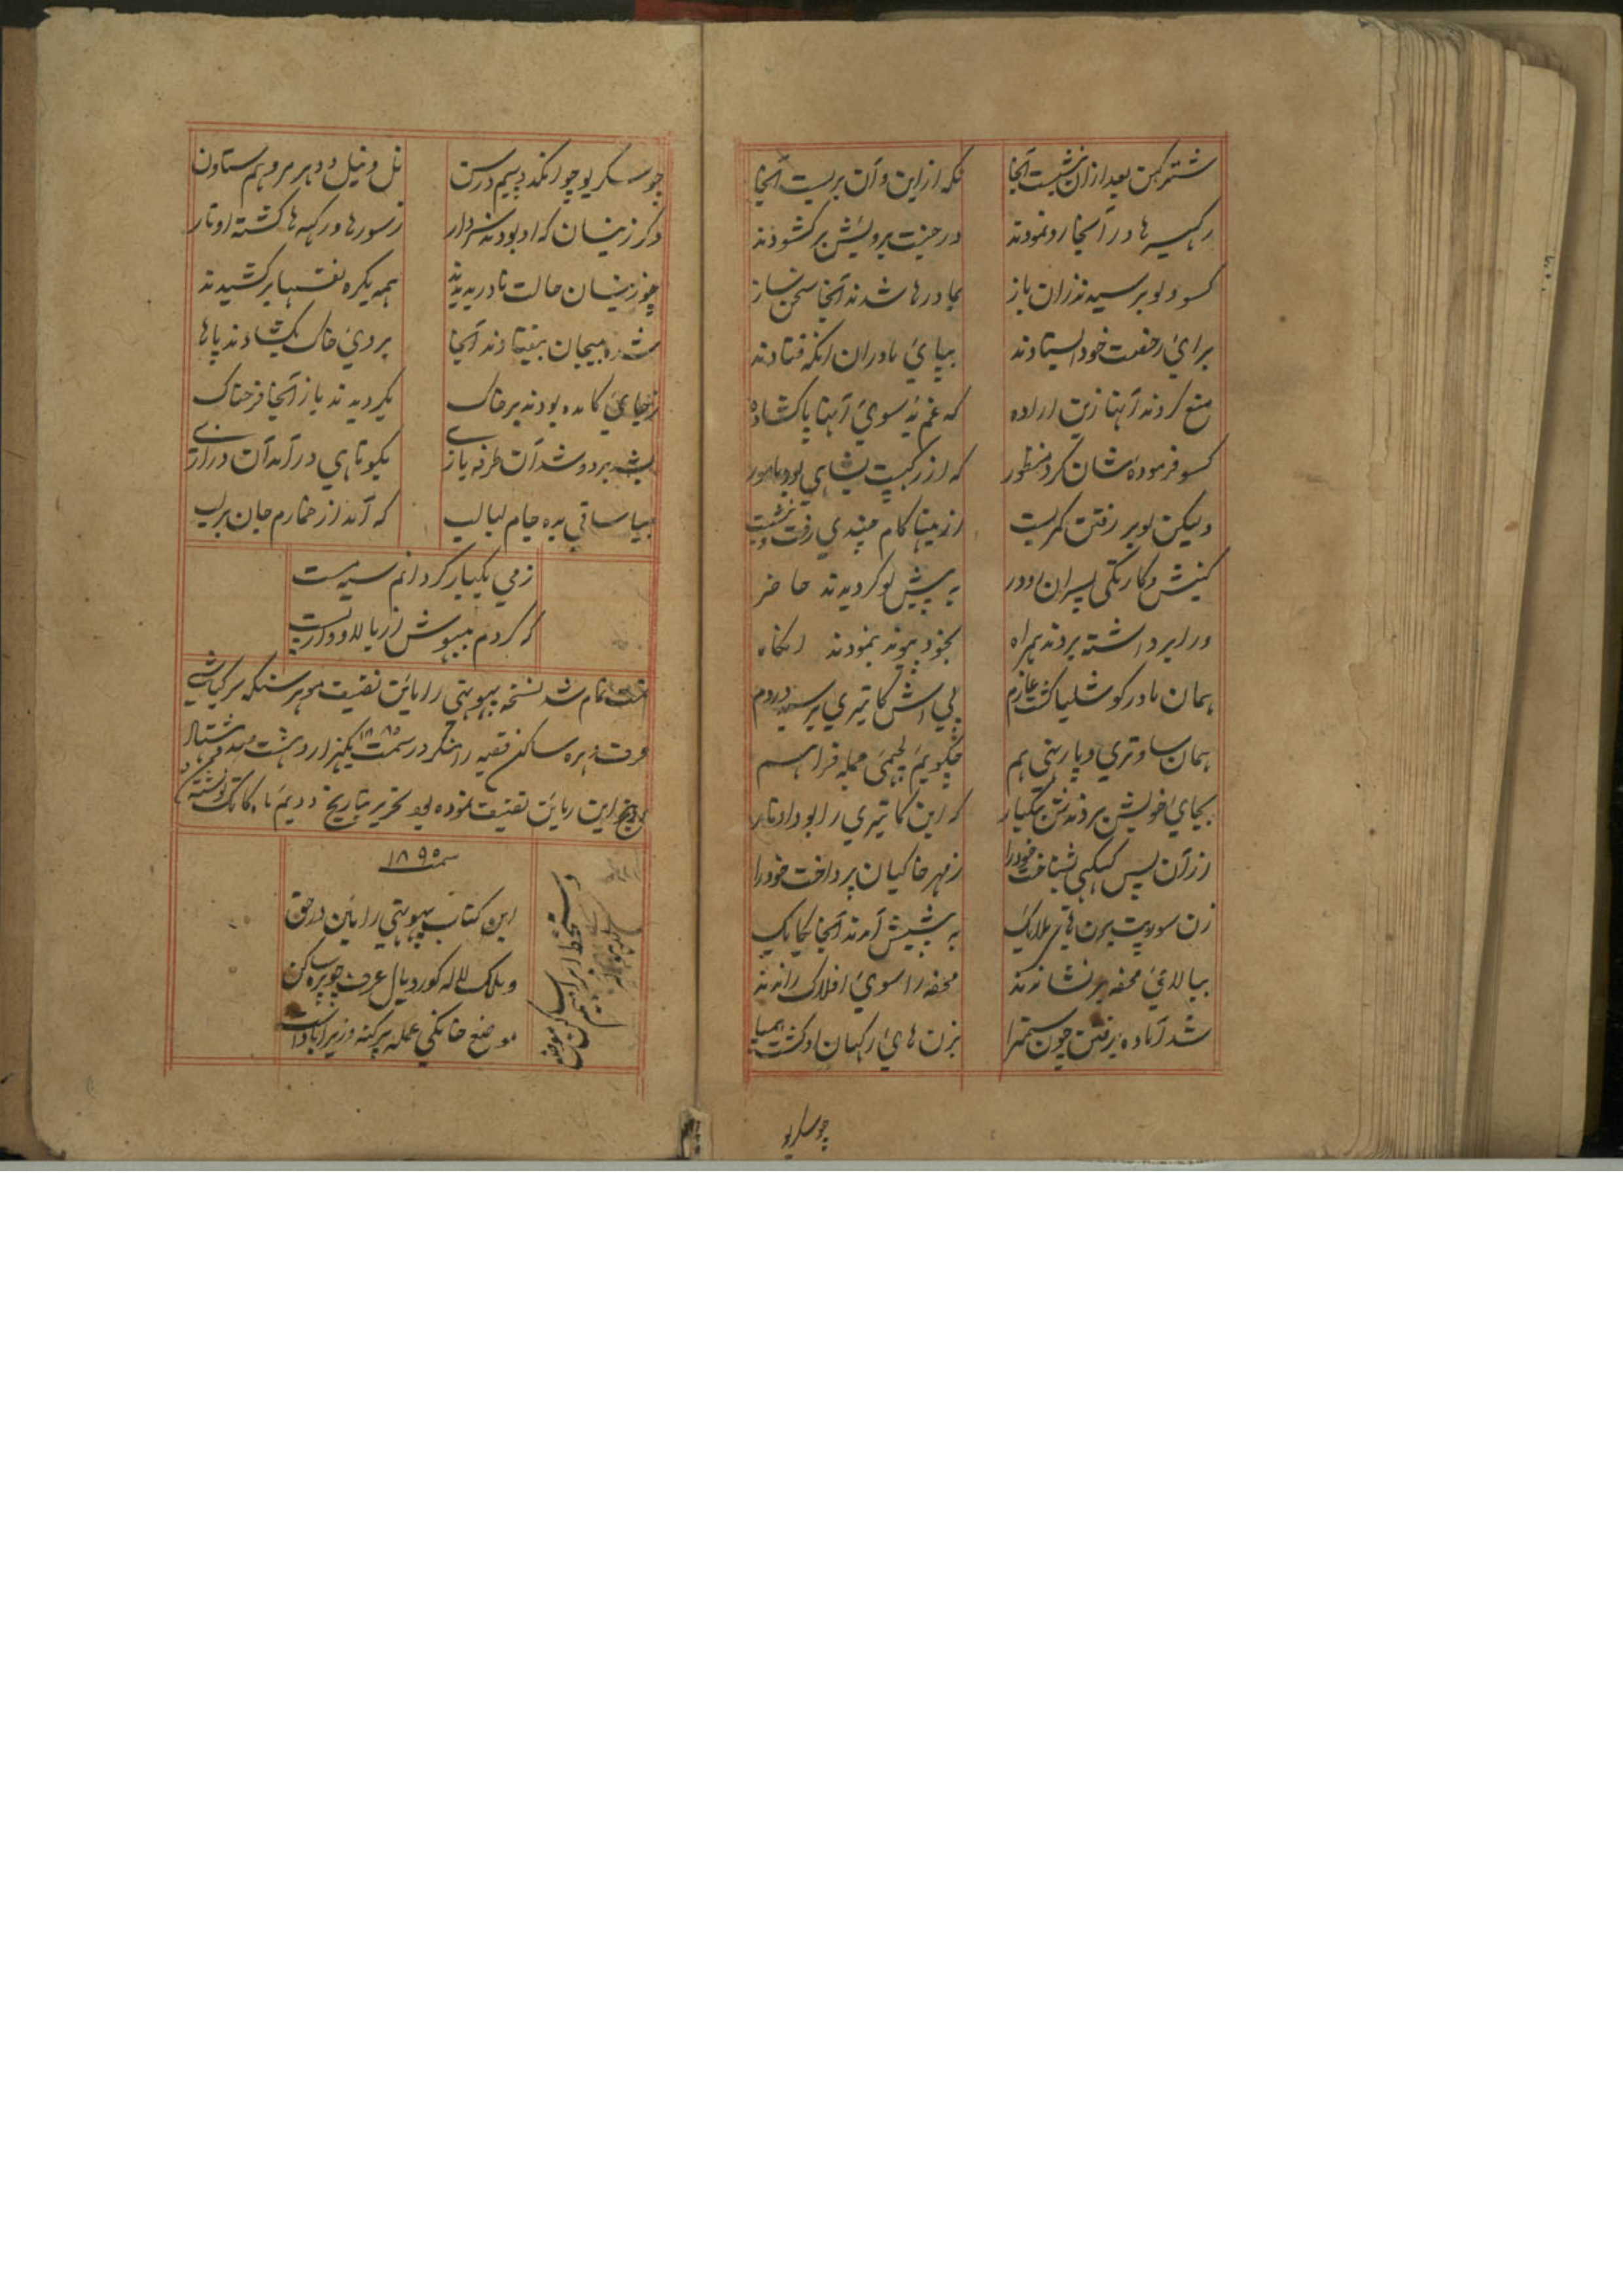 شتر کهن بعد ازان نشست آنجا نکه از این و آن بر بست آنجا
رکهیسر ها در آنجا رو نمودند در جنت برویش بر کشودند
کسو و لو بر سیدند زان باز بمادرها شدند آنجا سخن ساز
برای رخصت خود ایستادند بپای مادران انگه فتادند
منع کردند آنها زین اراده که غم نه سوی آنها پا کشاده
کسو فرموده شان کرد منظور که از رکهیت بشاهی بود مامور
ولیکن لو بر رفتن کمر بست از مینا کام چندی رفت و بنشست
کنیش و کارتکی پسران او در به پیش لو کردیدند حاضر
ورا برداشته بردند همراه بخود پیوند بنمودند انگاه
همان مادر کوشلیا کشت عازم پی اش کایتری پرسید دردم
همان ساوتری و پاربتی هم چکویم لچهمی جمله فراهم
بجای خویش بردندش بیکبار که این کایتری را بود اوتار
از آن پس کیکئی بشناخت خود را ز مهر خاکیان پرداخت خود را
زن سورپت برن هاتی ملایک به پیش آمدند آنجا یکایک
ببالای محفه بر نشاندند محفه را سوی افلاک راندند
شد آماده برفتن چون سمترا بزن های رکهان او کشت همپا
چو سکریو
چو سکریو چو انکد چسیم درسن نل و نیل و دهرمر و هم ستاون
دکر زینسان که او بودند سردار ز سورها و رکهه ها کشته اوتار
چو زینسان حالت نادر بدیدند همه یکره نفسها بر کشیدند
شده بیجان بیفتادند آنجا بروی خاک بکشادند پاها
ز جای کامده بودند بر خاک بکردیدند باز آنجا فرحناک
بشد بر دو شد آن طرفه بازی بکوتاهی در آمد آن درازی
بیا ساقی بده جام لبالب که آمد از خمارم جان بر لب
ز می یکبار کردانم سیه مست
که کردم بیهوش از بالا و از پست
تمت تمام شد نسخه پهوتهی راماین تصنیف موهر سنکه سرکباشی
عرف دهره ساکن قصبه رامنکر در سمت ۱۸۸۵ یکهزار و هشت صد و هشتاد و پنج
این رماین تصنیف نموده بود تحریر بتاریخ دویم ماه کاتک نوشته شد
سمت ۱۸۹۵
این کتاب پهوتهی راماین در حق
و ملک لاله کوردیال عرف چوپره ساکن
موضع خانکی عمله پرکنه وزیراباد است
دستخط